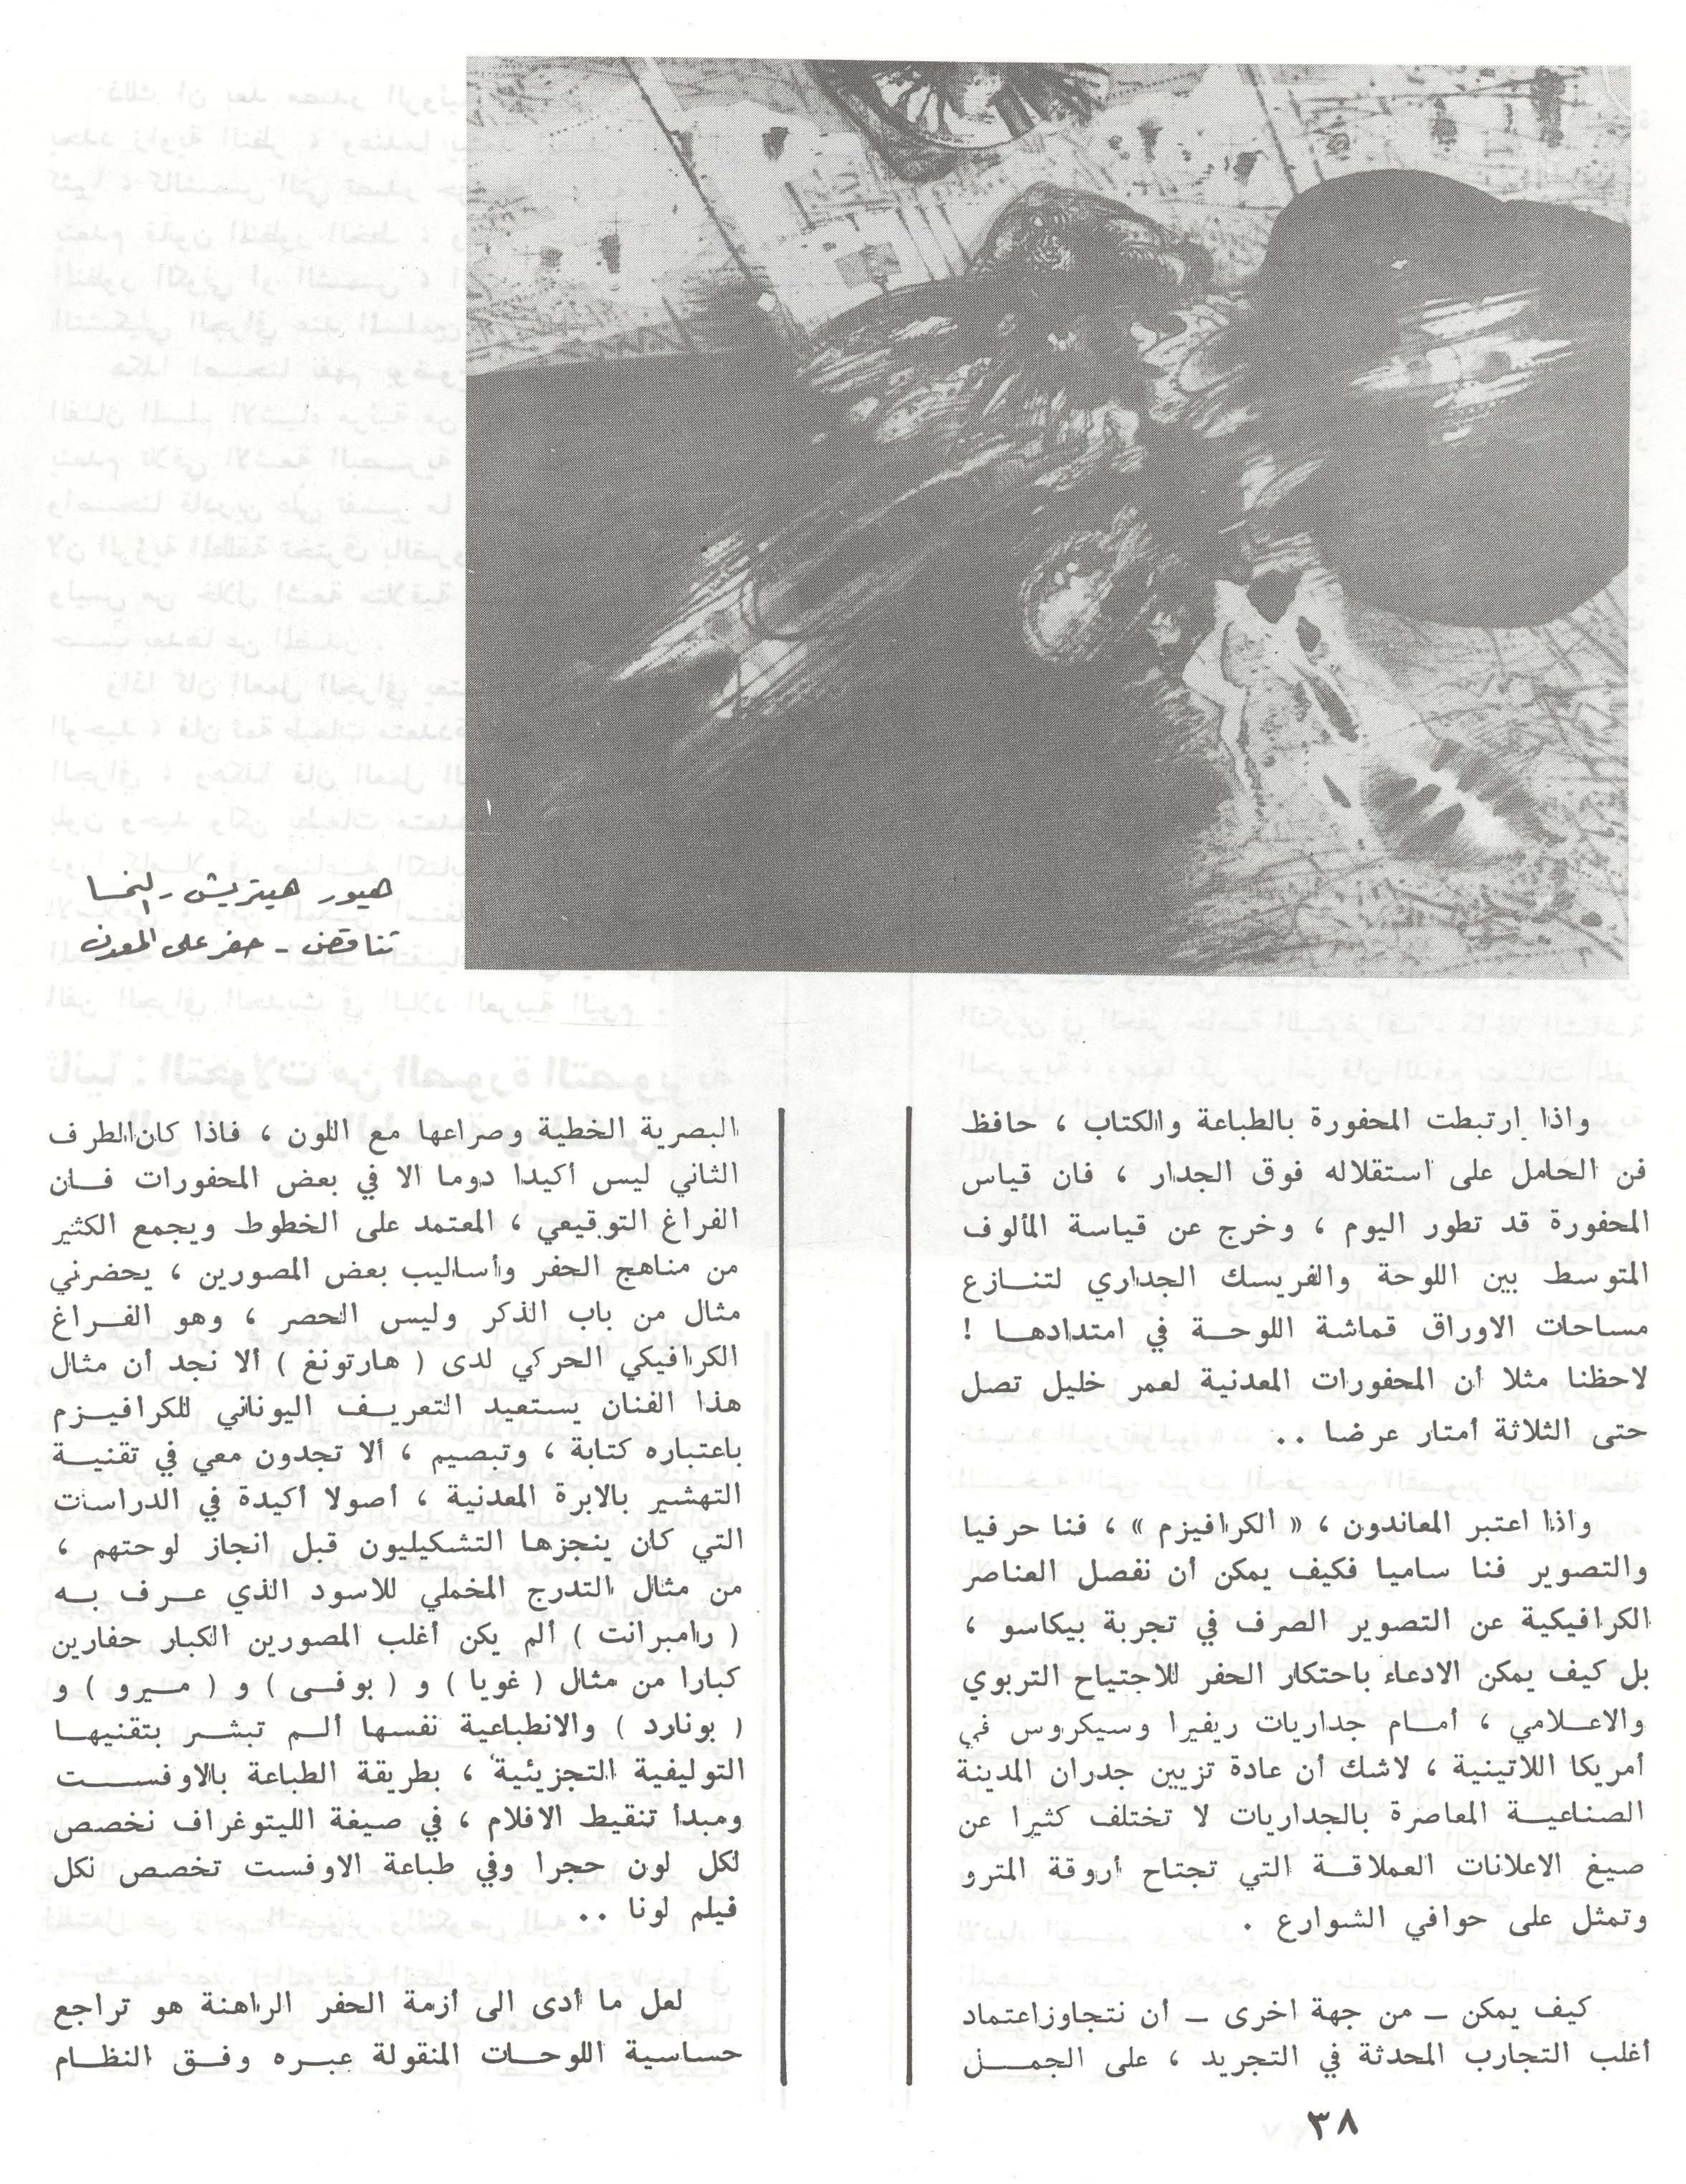 هيور هيتريش - النمسا
تناقض - حفر على المعدن
واذا ارتبطت المحفورة بالطباعة والكتاب ، حافظ
فن الحامل على استقلاله فوق الجدار ، فان قياس
المحفورة قد تطور اليوم ، وخرج عن قياسة المألوف
المتوسط بين اللوحة والفريسك الجداري لتنازع
مساحات الاوراق قماشة اللوحة في امتدادها !
لاحظنا مثلا أن المحفورات المعدنية لعمر خليل تصل
حتى الثلاثة أمتار عرضا ..
واذا اعتبر المعاندون ، « الكرافيزم » ، فنا حرفيا
والتصوير فنا ساميا فكيف يمكن أن نفصل العناصر
الكرافيكية عن التصوير الصرف في تجربة بيكاسو ،
بل كيف يمكن الادعاء باحتكار الحفر للاجتياح التربوي
والاعلامي ، أمام جداريات ريفيرا وسيكروس في
أمريكا اللاتينية ، لاشك أن عادة تزيين جدران المدينة
الصناعية المعاصرة بالجداريات لا تختلف كثيرا عن
صيغ الاعلانات العملاقة التي تجتاح أروقة المترو
وتمثل على حوافي الشوارع .
كيف يمكن – من جهة اخرى – أن نتجاوز اعتماد
أغلب التجارب المحدثة في التجريد ، على الجمل
البصرية الخطية وصراعها مع اللون ، فاذا كان الطرف
الثاني ليس أكيدا دوما الا في بعض المحفورات فان
الفراغ التوقيعي ، المعتمد على الخطوط ويجمع الكثير
من مناهج الحفر وأساليب بعض المصورين ، يحضرني
مثال من باب الذكر وليس الحصر ، وهو الفراغ
الكرافيكي الحركي لدى ( هارتونغ ) ألا نجد أن مثال
هذا الفنان يستعيد التعريف اليوناني للكرافيزم
باعتباره كتابة ، وتبصيم ، ألا تجدون معي في تقنية
التهشير بالابرة المعدنية ، أصولا أكيدة في الدراسات
التي كان ينجزها التشكيليون قبل انجاز لوحتهم ،
من مثال التدرج المخملي للاسود الذي عرف به
( رامبرانت ) ألم يكن أغلب المصورين الكبار حفارين
كبارا من مثال ( غويا ) و ( بوفى ) و ( ميرو ) و
( بونارد ) والانطباعية نفسها ألم تبشر بتقنيها
التوليفية التجزيئية ، بطريقة الطباعة بالاوفست
ومبدأ تنقيط الافلام ، في صيغة الليتوغراف نخصص
لكل لون حجرا وفي طباعة الاوفست تخصص لكل
فيلم لونا ..
لعل ما أدى الى أزمة الحفر الراهنة هو تراجع
حساسية اللوحات المنقولة عبره وفق النظام
٣٨